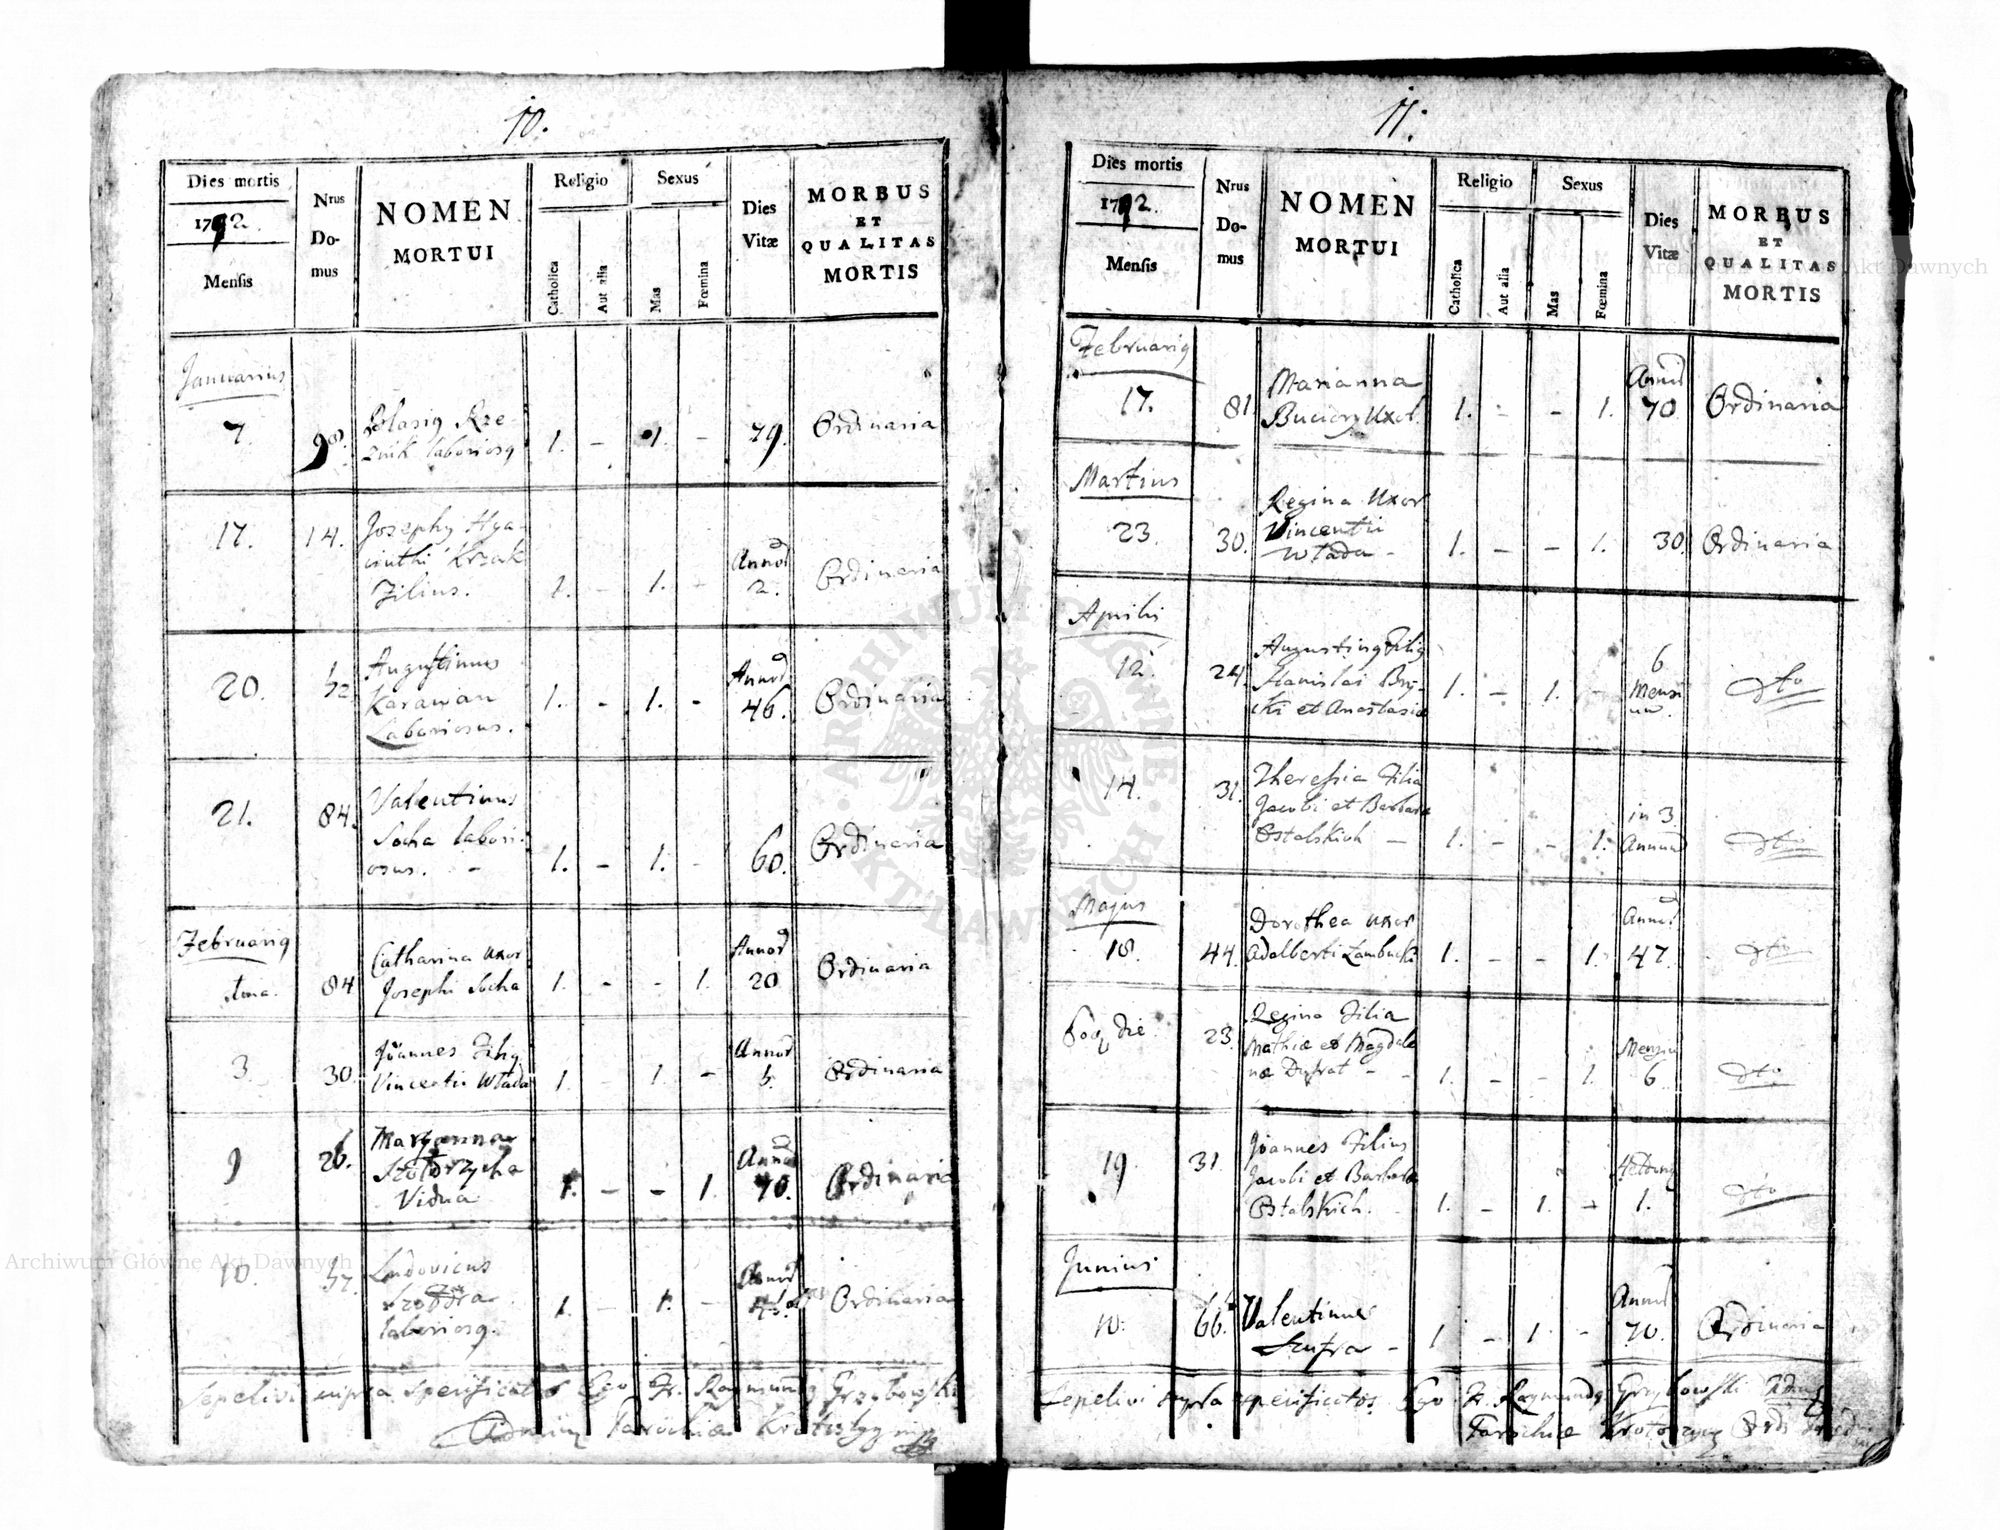 10.
Dies mortis
1792.
Mensis
Nrus Do-mus
NOMEN
MORTUI
Religio
Catholica
Aut alia
Sexus
Mas
Fœmina
Dies
Vitæ
MORBUS
ET
QUALITAS
MORTIS
Januarius
7. 98. Blasig Rze-
znik laboriosg 1. - 1. - 79. Ordinaria
17. 14. Josephg Hya-
cinthi Krzak
Filius. 1. - 1. - Annor 2. Ordinaria
20. 52 Augustinus
Karawan
Laboriosus. 1. - 1. - Annor 46. Ordinaria
21. 84. Valentinus
Socha labori-
osus. - 1. - 1. - 60. Ordinaria
Februarig
1ma. 84 Catharina uxor
Josephi Socha 1. - - 1. Annor 20 Ordinaria
3. 30. Joannes Filig
Vincentii Wlada 1. - 1. - Annor 5. Ordinaria
9 26. Maryanna
Vidua 1. - - 1. Annor 70. Ordinaria
10. 57. Ludovicus
laboriosg. 1. - 1. - Annor Ordinaria
Sepelivi supra specificatos Ego Fr. Raymundg Grzybowski
Parochiae
11.
Dies mortis
1792.
Mensis
Nrus Do-mus
NOMEN
MORTUI
Religio
Catholica
Aut alia
Sexus
Mas
Fœmina
Dies
Vitæ
MORBUS
ET
QUALITAS
MORTIS
Februarig
17. 81. Marianna
Uxor. 1. - - 1. Annor 70 Ordinaria
Martius
23. 30. Regina Uxor
Vincentii
Wlada - 1. - - 1. 30. Ordinaria
Aprilis
12. 24. Augusting Filig
Stanislai
et Anastasiae 1. - 1. - 6 Mensi um. dto
14. 31. Theressia Filia
Jacobi et Barbara
Ostalskich - 1. - - 1. in 3. Annum dto
Majus
18. 44. Dorothea uxor
Adalberti 1. - - 1. Annor 47. dto
Eoq die. 23. Regina Filia
Mathiæ et Magdale
næ - - 1. - - 1. Mensiu 6 dto
19 31. Joannes Filius
Jacobi et Barbara
Ostalskich. 1. - 1. - 1. dto
Junius
10. 66. Valentinus
- 1 - 1. - Annor 70. Ordinaria
Sepelivi supra specificatos. Ego Fr. Raymundg Grzybowski
Parochiæ
Archiwum Główne Akt Dawnych
Archiwum Główne Akt Dawnych
ARCHIWUM GŁÓWNE AKT DAWNYCH